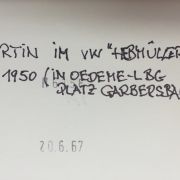 RTIN IM VW "HEBMÜLLER
1950 (IN OEDEME-LBG
PLATZ GARBERSBA
20.6.67